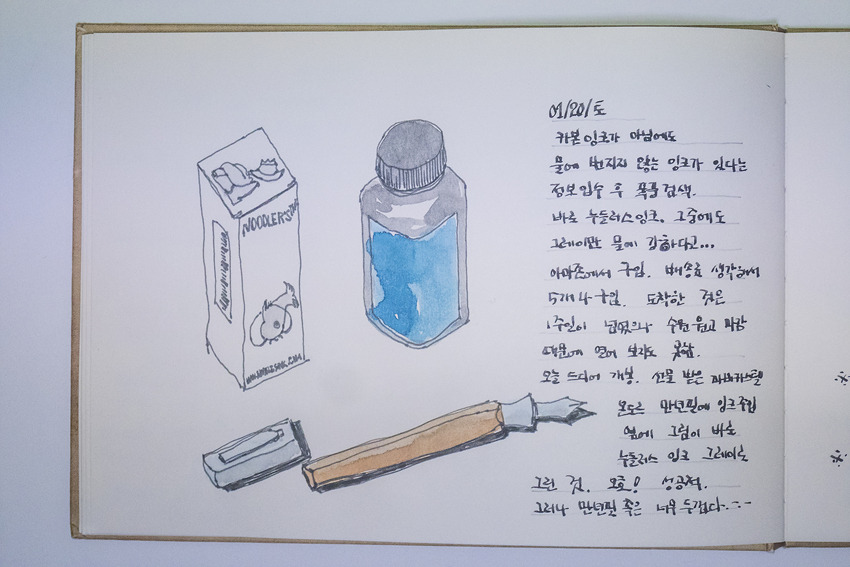 NOODLER'S INK
01/20/토
카본잉크가 아님에도
물에 번지지 않는 잉크가 있다는
정보 입수 후 폭풍검색.
바로 누들러스잉크. 그중에도
그레이만 물에 강하다고...
아마존에서 구입. 배송료 생각해서
5개나 구입. 도착한 것은
1주일이 넘었으나 수원 원고 마감
때문에 열어 보지도 못함.
오늘 드디어 개봉. 선물 받은 파버카스텔
온도르 만년필에 잉크주입
옆에 그림이 바로
누들러스 잉크 그레이로
그린 것. 오호! 성공적.
그러나 만년필 촉은 너무 두껍다.